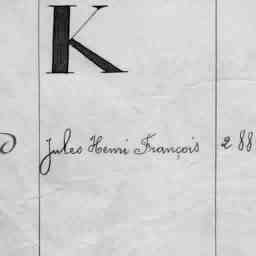 K
Jules Henri François 2 88